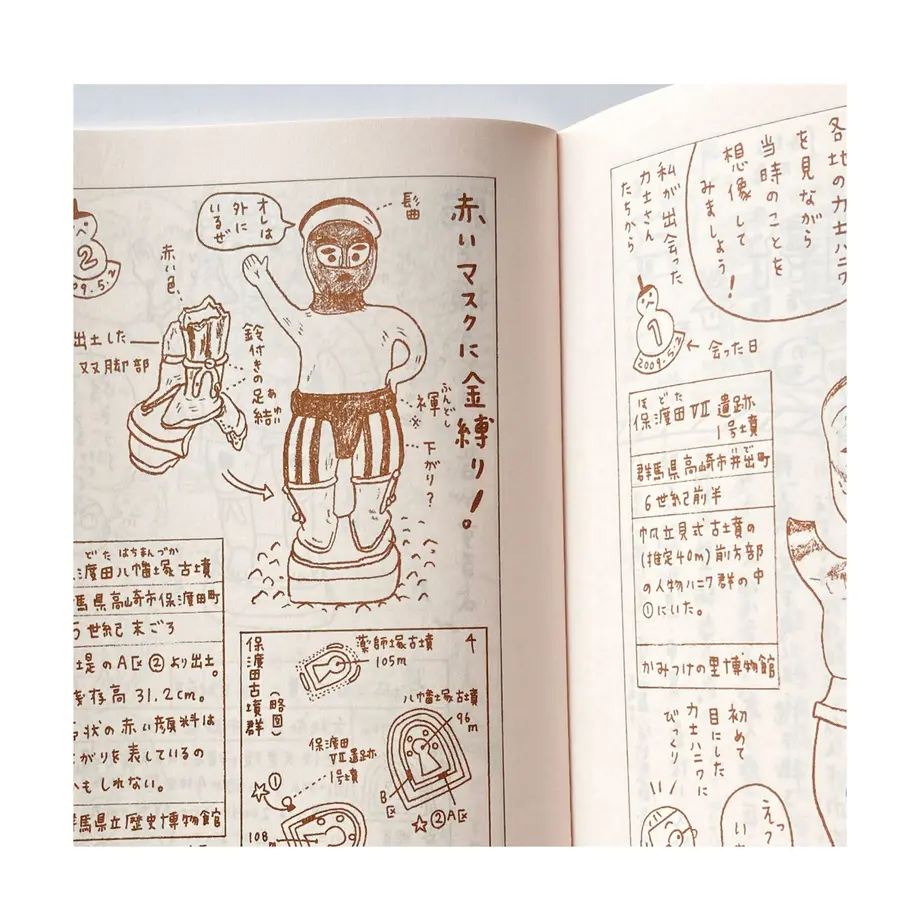 各地の力士ハニワ
を見ながら
当時のことを
想像して
みましょう!
私が出会った
力士さん
たちから
1
2009.5.2
← 会った日
ほどた
保渡田Ⅶ遺跡
1号墳
いで
群馬県高崎市井出町
6世紀前半
帆立貝式古墳の
(推定40m)前方部
の人物ハニワ群の中
①にいた。
かみつけの里博物館
初めて
目にした
力士ハニワに
びっくり
えっ
赤いマスクに金縛り!。
髷
オレは
外に
いるぜ
2
09.5.2
赤い色
出土した
双脚部
鈴付きの足結
あゆい
褌
ふんどし
※
下がり?
どたはちまんづか
渡田八幡塚古墳
馬県高崎市保渡田町
5世紀末ごろ
堤のA区②より出土。
存高31.2cm。
状の赤い顔料は
がりを表しているの
かもしれない。
群馬県立歴史博物館
保渡田古墳群
(略図)
薬師塚古墳
105m
八幡塚古墳
96m
保渡田
Ⅶ遺跡
1号墳
☆①
B区
☆②A区
108m